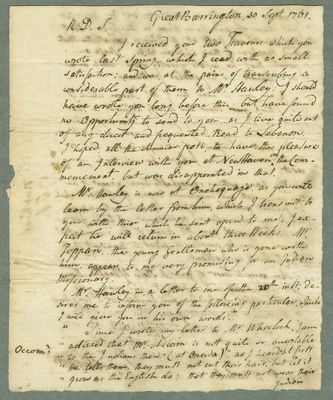 Great Barrington, 30 Sept. 1761.
R. D. S.
I received your two Favours which you
wrote last Spring, which I read with no small
satisfaction; and was at the pains of transcribing a
considerable part of them to Mr. Hawley. I should
have wrote you long before this, but have found
no Opportunity to send to you, as I live quite out
of any direct and frequented Road to Lebanon.
I hoped all the Summer past, to have the pleasure
of an Interview with you at New Haven on the Com-
mencement, but was disappointed in that.
Mr. Hawley is now at Onohoquage, as you will
learn by the Letter from him, which I transmit to
you with this; which he sent open to me. I ex-
pect he will return in about three Weeks. Mr.
Toppan, the young Gentleman who is gone with
him, appears to me very promising for an Indian
Missionary.
Mr. Hawley in a letter to me of the 20th inst. De-
sires me to inform you of the following particulars, which
I will give you in his own words.
" Since I wrote my letter to Mr. Wheelock, I am
" advised that Mr. Occom is not quite so acceptable
Occom
" to the Indians there (at Oneida) as I heard at first
" he tells them, they must not cut their hair, but let it
" grow as the English do; that they must not wear their
" Indian